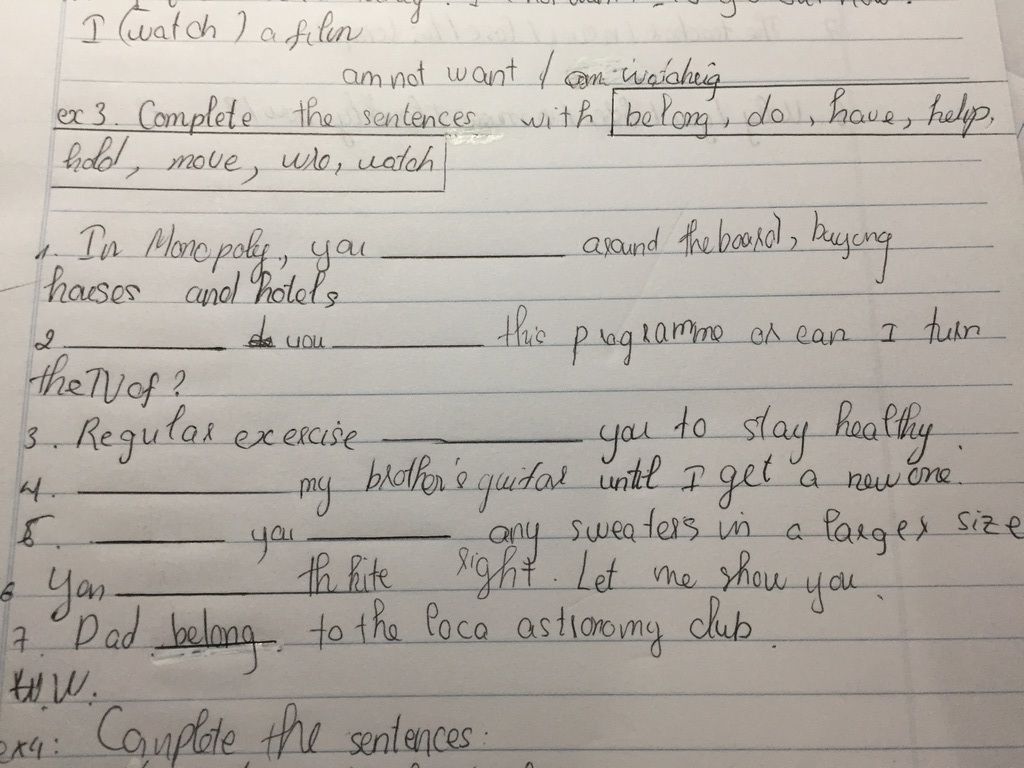 I (watch) a film
am not want / am watching
ex 3. Complete the sentences with belong, do, have, help,
hold, move, use, watch
1. In Monopoly, you ________ around the board, buying
houses and hotels
2 ________ you ________ this programme or can I turn
the TV of?
3. Regular exercise ________ you to stay healthy.
4. ________ my brother's guitar until I get a new one.
5. ________ you ________ any sweaters in a larger size
6 You ________ th kite right. Let me show you.
7. Dad belong to the loca astronomy club.
H.W.
ex4: Complete the sentences: